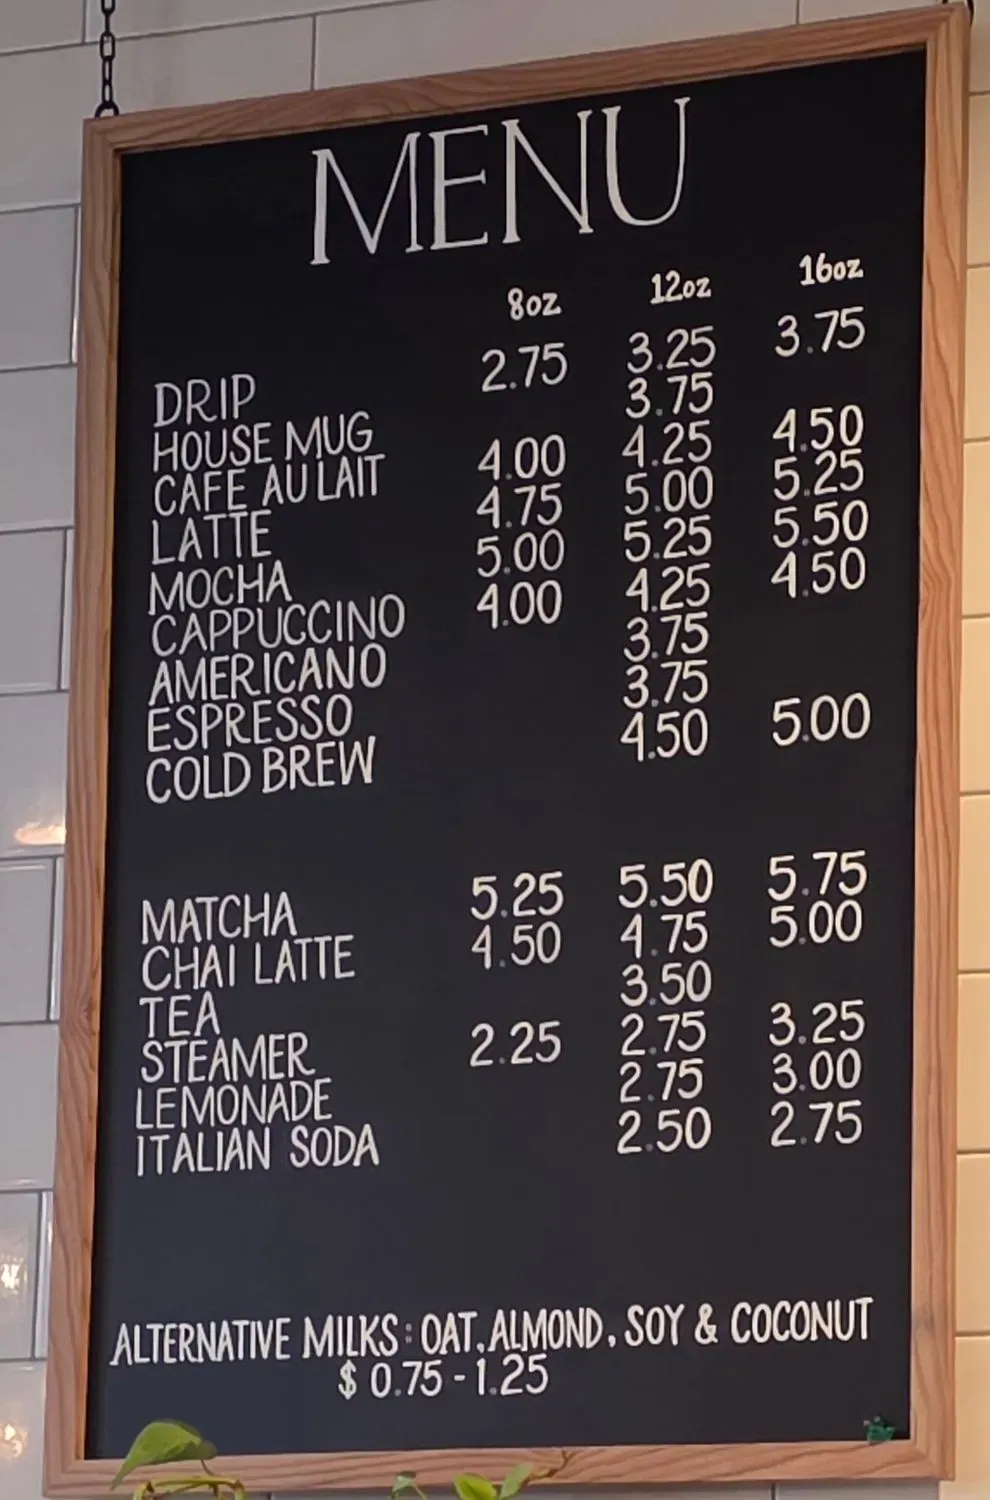 MENU
8oz 12oz 16oz
DRIP 2.75 3.25 3.75
HOUSE MUG 3.75
CAFE AU LAIT 4.00 4.25 4.50
LATTE 4.75 5.00 5.25
MOCHA 5.00 5.25 5.50
CAPPUCCINO 4.00 4.25 4.50
AMERICANO 3.75
ESPRESSO 3.75
COLD BREW 4.50 5.00
MATCHA 5.25 5.50 5.75
CHAI LATTE 4.50 4.75 5.00
TEA 3.50
STEAMER 2.25 2.75 3.25
LEMONADE 2.75 3.00
ITALIAN SODA 2.50 2.75
ALTERNATIVE MILKS: OAT, ALMOND, SOY & COCONUT
$ 0.75 - 1.25